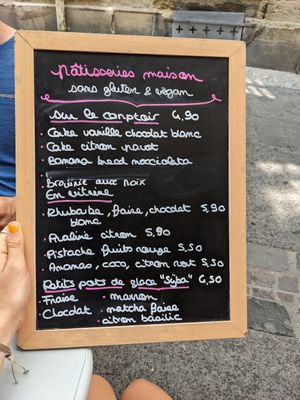 Pâtisseries maison
sans gluten & vegan
Sur le comptoir 4,90
· Cake vanille chocolat blanc
· Cake citron pavot
· Banana bread nocciolata
· Brownie aux noix
En vitrine
· Rhubarbe, fraise, chocolat 5,90
blanc
· Praliné citron 5,90
· Pistache fruits rouge 5,50
· Ananas, coco, citron vert 5,50
Petits pots de glace "Sijba" 4,50
Fraise · marron
Chocolat · matcha fraise
· citron basilic